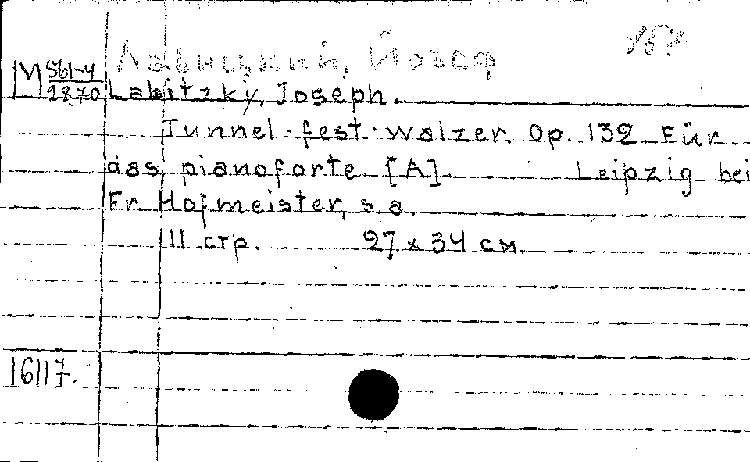 Лабицкий, Йозеф
М 561-4
2870
Labitzky, Joseph.
Tunnel-fest-walzer. Op. 132 Für
das pianoforte [A]. Leipzig bei
Fr Hofmeister, s.a.
11 стр. 27 x 34 см.
16117.